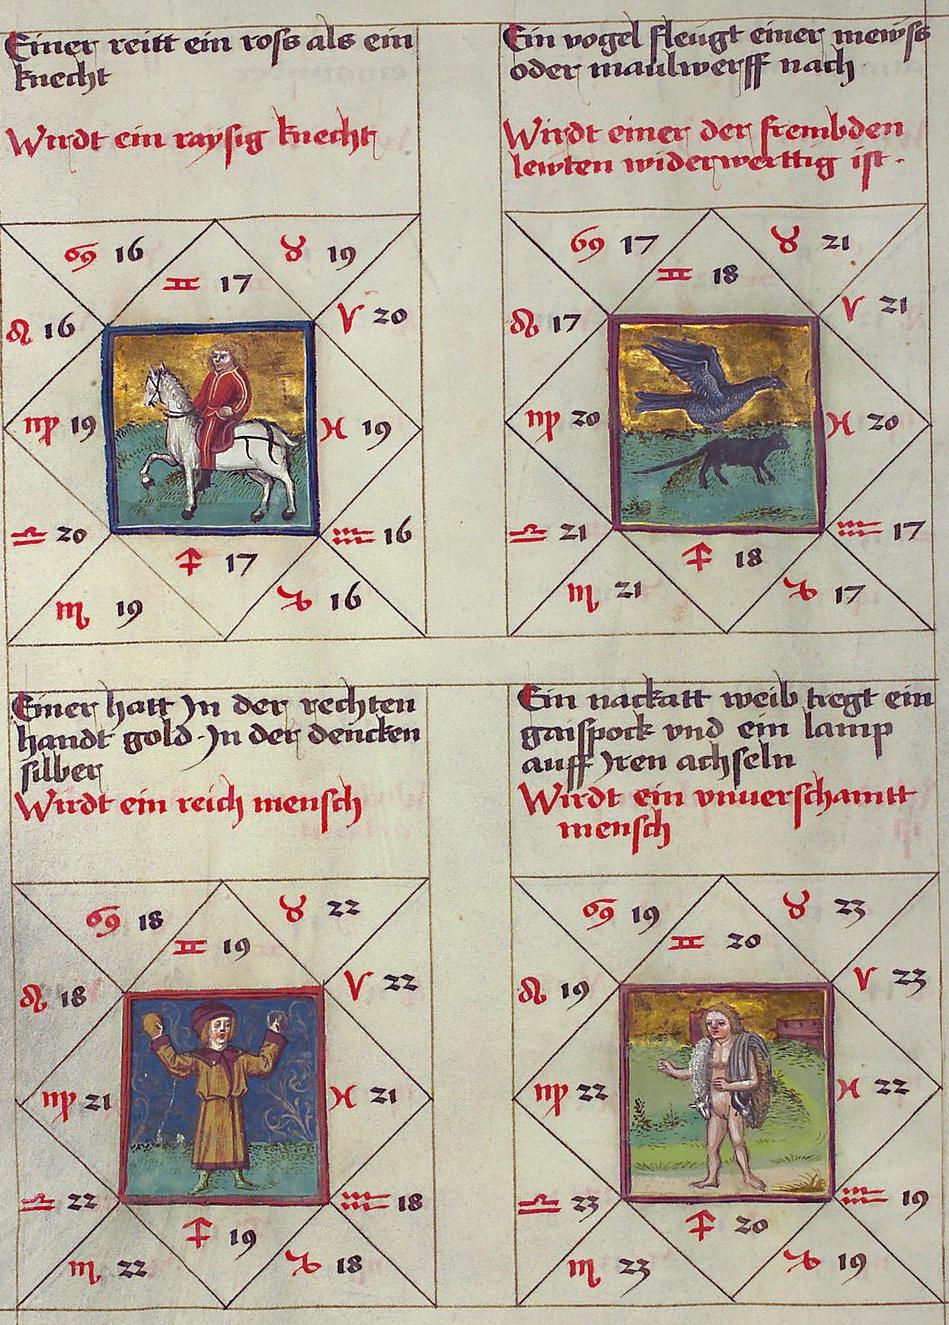 Einer reitt ein ross als ein
knecht
Wirdt ein raysig knecht
♋ 16
♊ 17
♉ 19
♌ 16
♈ 20
♍ 19
♓ 19
♎ 20
♒ 16
♐ 17
♏ 19
♑ 16
Ein vogel fleugt einer mewss
oder maulwerff nach
Wirdt einer der frembden
lewten widerwerttig ist.
♋ 17
♊ 18
♉ 21
♌ 17
♈ 21
♍ 20
♓ 20
♎ 21
♒ 17
♐ 18
♏ 21
♑ 17
Einer hatt Jn der rechten
handt gold. Jn der dencken
silber
Wirdt ein reich mensch
♋ 18
♊ 19
♉ 22
♌ 18
♈ 22
♍ 21
♓ 21
♎ 22
♒ 18
♐ 19
♏ 22
♑ 18
Ein nackatt weib tregt ein
gaispock vnd ein lamp
auff Jren achseln
Wirdt ein vnuerschamtt
mensch
♋ 19
♊ 20
♉ 23
♌ 19
♈ 23
♍ 22
♓ 22
♎ 23
♒ 19
♐ 20
♏ 23
♑ 19